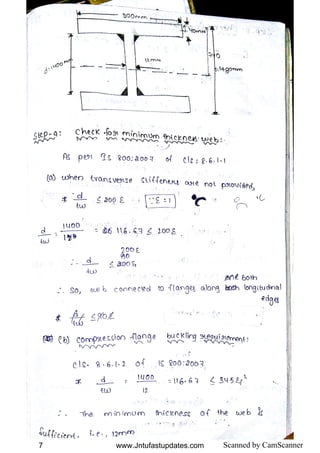 500mm
40mm
12mm
d=1400
1490mm
Step-4: Check for minimum thickness web:
As per IS 800:2007 of cls: 8.6.1.1
(a) when transverse stiffeners are not provided,
* d/tw ≤ 200 ε , ∵ ε = 1
d/tw = 1400/12 = 116.67 ≤ 200 ε
200 ε
∴ d/tw ≤ 200 ε,
∴ So, web connected to flanges along both longitudinal
edges
(b) compression flange buckling requirement:
cls- 8.6.1.2 of IS 800:2007;
* d/tw = 1400/12 = 116.67 ≤ 345 εf²
∴ The minimum thickness of the web is
sufficient. i.e., 12mm
7 www.Jntufastupdates.com Scanned by CamScanner